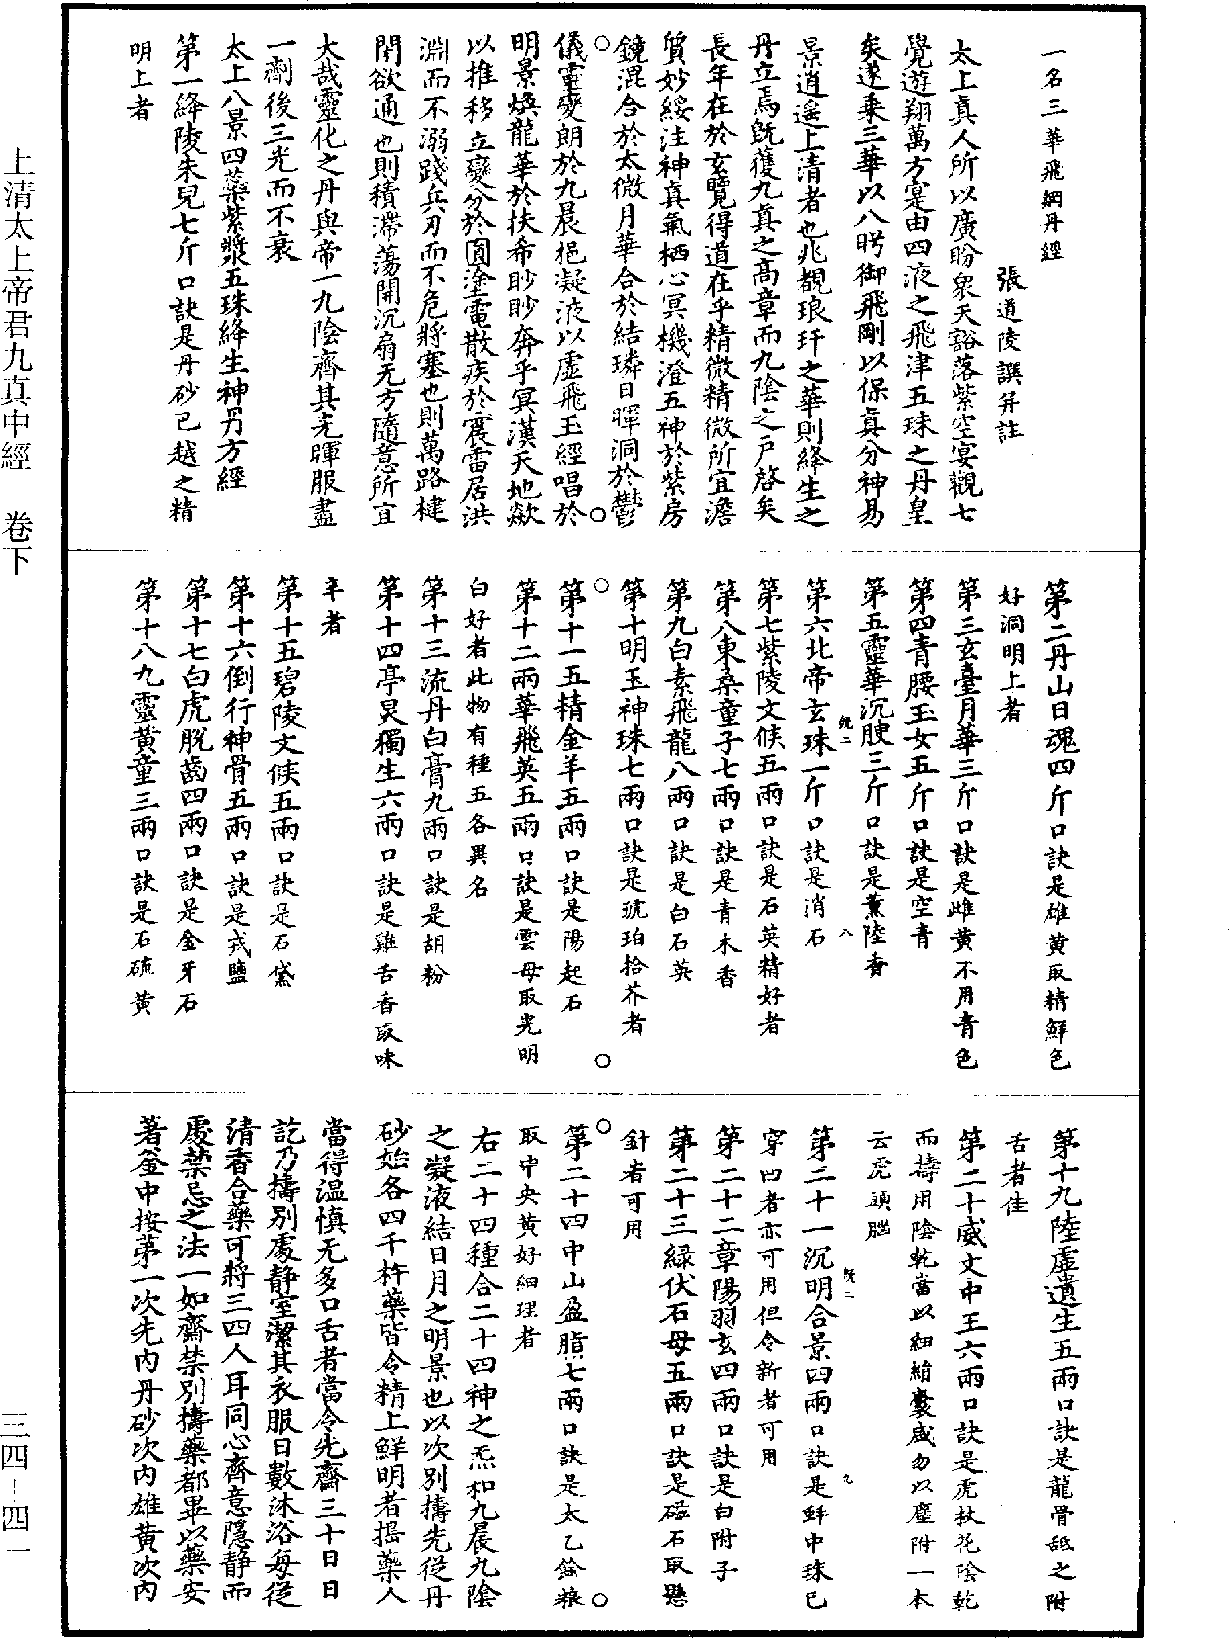 一名三華飛綱丹經
張道陵譔并註
太上真人所以廣盼衆天豁落紫空宴觀七
覺遊翔萬方寔由四液之飛津五珠之丹皇
矣遂乘三華以八眄御飛剛以保真分神易
景逍遥上清者也兆覩琅玕之華則絳生之
丹立焉旣獲九真之高章而九陰之戶啓矣
長年在於玄覽得道在乎精微精微所宜澹
質妙綏注神真氣栖心冥機澄五神於紫房
鏡混合於太微月華合於結璘日暉洞於鬱
儀電變朗於九晨挹凝液以虛飛玉經唱於
明景煥龍華於扶希眇眇奔乎冥漢天地歘
以推移立變分於圓塗電散疾於震雷居洪
淵而不溺踐兵刃而不危將塞也則萬路揵
閇欲通也則積滯蕩開沉扇无方隨意所宜
大哉靈化之丹與帝一九陰齊其光暉服盡
一劑後三光而不衰
太上八景四蘂紫漿五珠絳生神丹方經
第一絳陵朱兒七斤口訣是丹砂巴越之精
明上者
第二丹山日魂四斤口訣是雄黃取精鮮色
好洞明上者
第三玄臺月華三斤口訣是雌黃不用青色
第四青腰玉女五斤口訣是空青
第五靈華沉腴三斤口訣是薰陸香
第六北帝玄珠一斤口訣是消石
第七紫陵文侯五兩口訣是石英精好者
第八東桑童子七兩口訣是青木香
第九白素飛龍八兩口訣是白石英
第十明玉神珠七兩口訣是琥珀拾芥者
第十一五精金羊五兩口訣是陽起石
第十二兩華飛英五兩口訣是雲母取光明
白好者此物有種五各異名
第十三流丹白膏九兩口訣是胡粉
第十四亭炅獨生六兩口訣是雞舌香取味
辛者
第十五碧陵文侯五兩口訣是石黛
第十六倒行神骨五兩口訣是戎鹽
第十七白虎脫齒四兩口訣是金牙石
第十八九靈黃童三兩口訣是石硫黃
第十九陸虛遺生五兩口訣是龍骨舐之附
舌者佳
第二十威文中王六兩口訣是虎杖花陰乾
而擣用陰乾當以細絹囊盛勿以塵附一本
云虎頭腦
第二十一沉明合景四兩口訣是蚌中珠已
穿凹者亦可用但令新者可用
第二十二章陽羽玄四兩口訣是白附子
第二十三緑伏石母五兩口訣是磁石取懸
針者可用
第二十四中山盈脂七兩口訣是太乙餘粮
取中央黃好細理者
右二十四種合二十四神之炁和九晨九陰
之凝液結日月之明景也以次別擣先從丹
砂始各四千杵藥皆令精上鮮明者搗藥人
當得温慎无多口舌者當令先齋三十日日
訖乃擣別處静室潔其衣服日數沐浴每從
清香合藥可將三四人耳同心齊意隱静而
處禁忌之法一如齋禁別擣藥都畢以藥安
著釜中按第一次先内丹砂次内雄黃次内
上清太上帝君九真中經 卷下
三四-四一